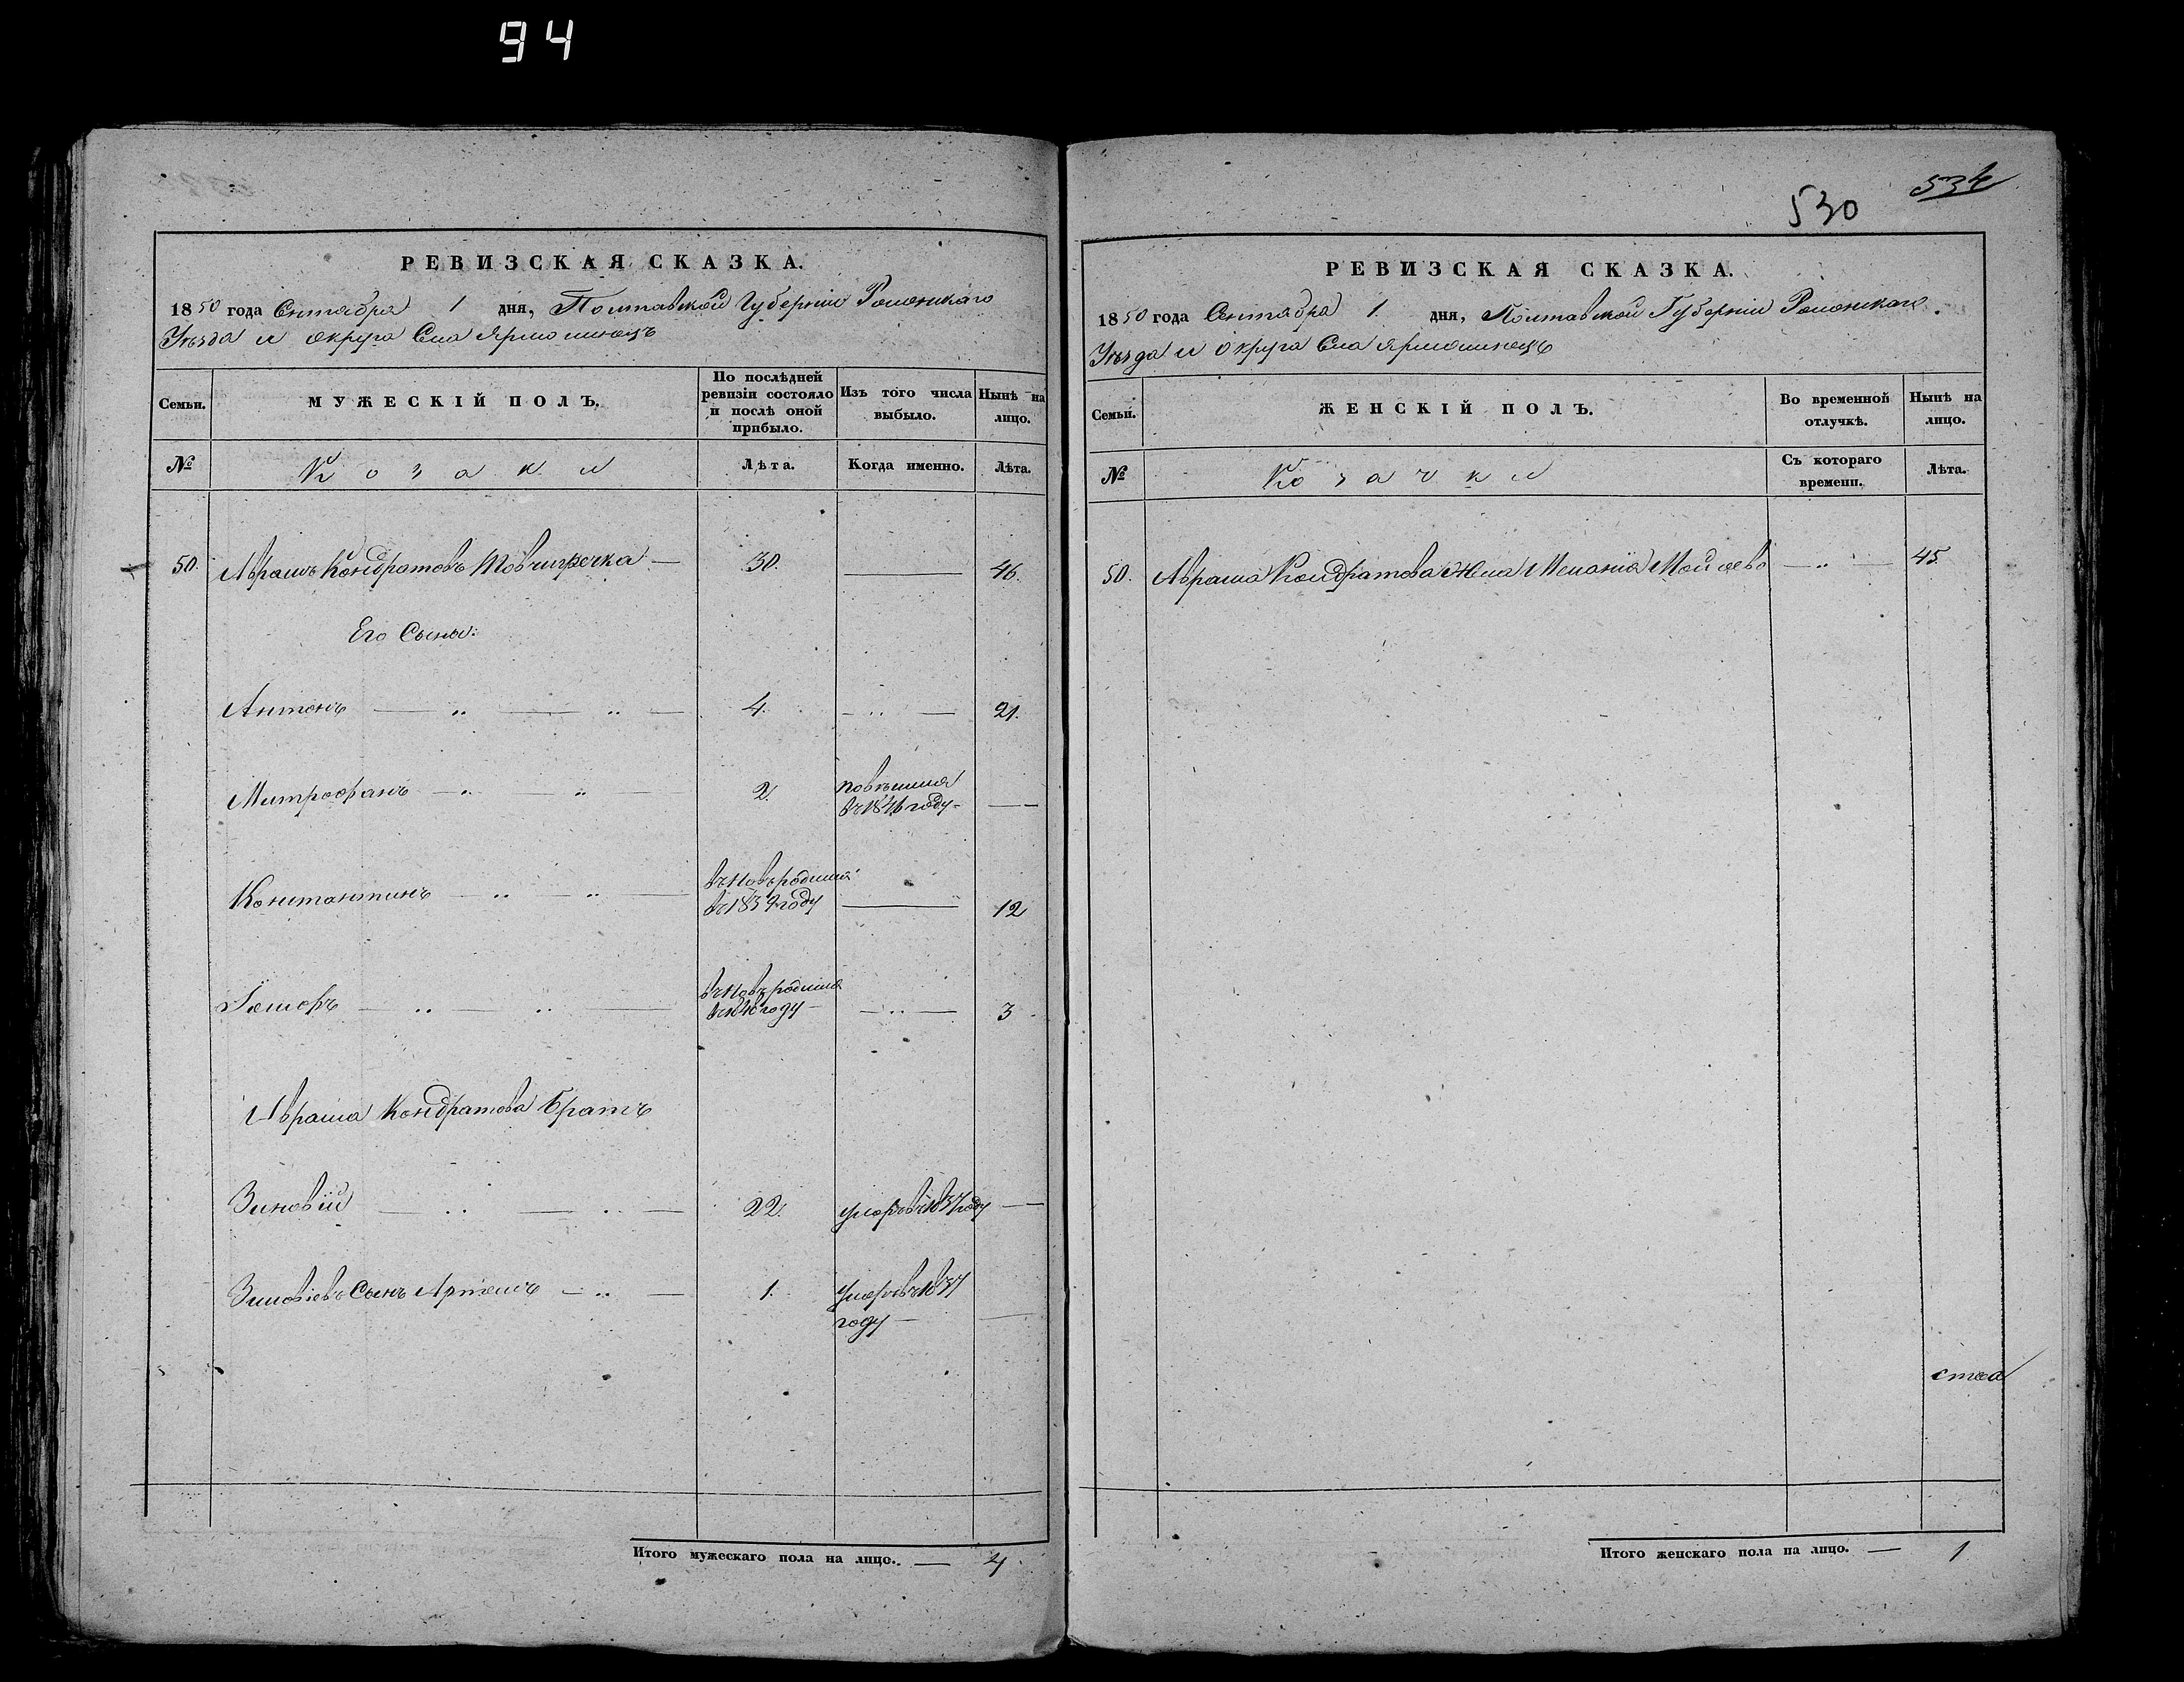 94
РЕВИЗСКАЯ СКАЗКА.
1850 года Сентября 1 дня, Полтавской Губерніи Роменскаго
Уѣзда и округа Села Ярмолинецъ
Семьи.
МУЖЕСКІЙ ПОЛЪ.
По послѣдней ревизіи состояло и послѣ оной прибыло.
Изъ того числа выбыло.
Нынѣ на лицо.
№
Козаки
Лѣта.
Когда именно.
Лѣта.
50. Аврамъ Кондратовъ Товчигречка — 30. — 46.
Его Сыны:
Антонъ — „ — „ — 4. — „ — 21.
Митрофанъ — „ — „ — 2.
в 1846 году — —
Константинъ — „ — „ —
въ новъ родился
въ 1837 году — 12
въ новъ родился
году — — „ — 3
Аврама Кондратова братъ
Зиновій — „ — „ — 22. умеръ въ 1837 году —
Зиновіевъ Сынъ Артемъ — „ — 1. умеръ въ 1837
году — —
Итого мужескаго пола на лицо. — 4
534
530
РЕВИЗСКАЯ СКАЗКА.
1850 года Сентября 1 дня, Полтавской Губерніи Роменскаго
Уѣзда и округа Села Ярмолинецъ
Семьи.
ЖЕНСКІЙ ПОЛЪ.
Во временной отлучкѣ.
Нынѣ на лицо.
№
Козачки
Съ котораго времени.
Лѣта.
50. Аврама Кондратова Жена Меланія Мойсеева — „ — 45.
Итого женскаго пола на лицо. — 1